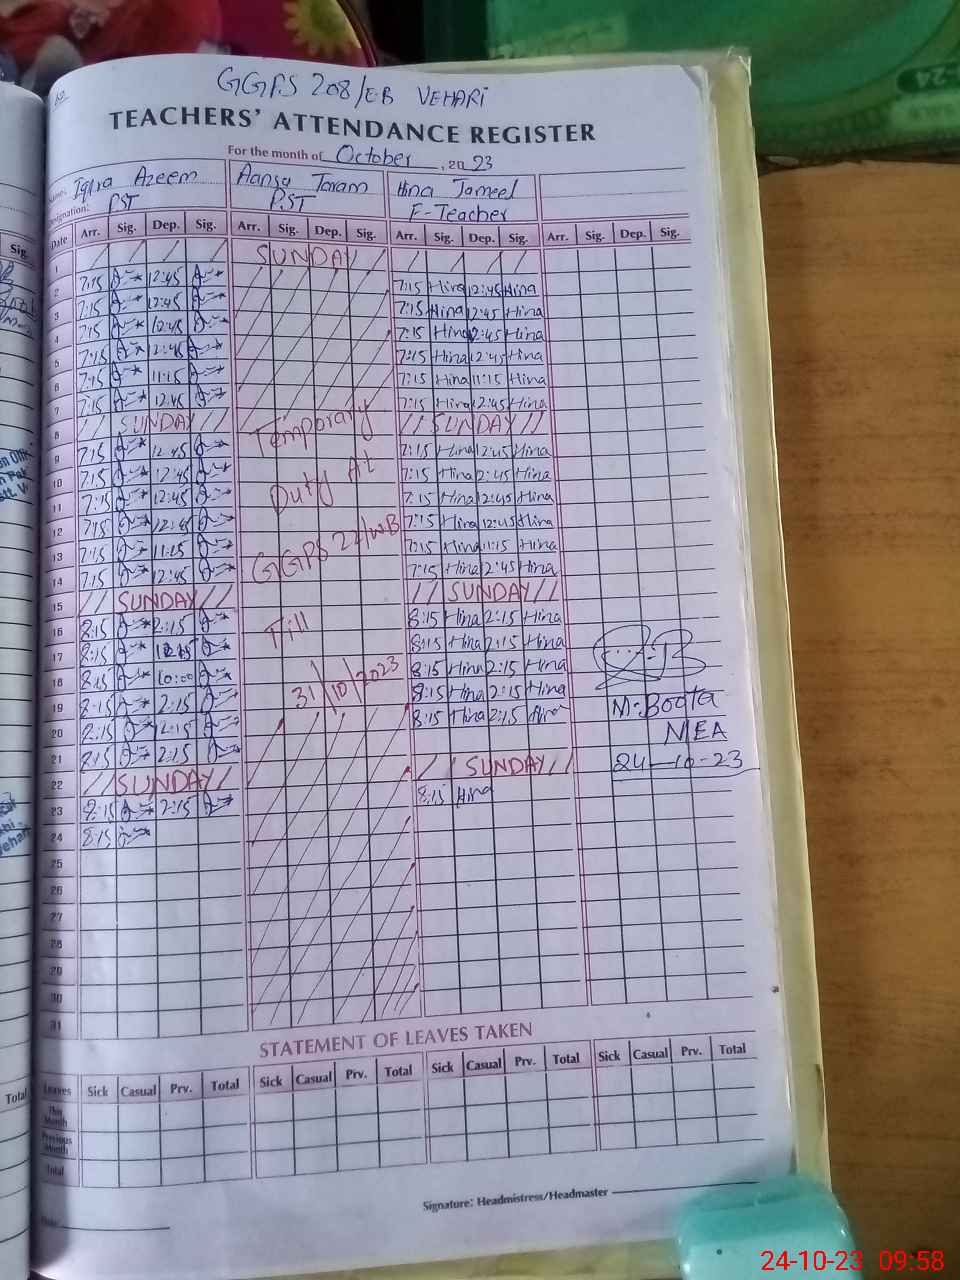 GGPS 208/EB VEHARI
TEACHERS' ATTENDANCE REGISTER
For the month of October, 2023
Name: Iqra Azeem Hina Jameel
Designation: PST PST F-Teacher
Date Arr. Sig. Dep. Sig. Arr. Sig. Dep. Sig. Arr. Sig. Dep. Sig. Arr. Sig. Dep. Sig.
1 SUNDAY
2 7:15 12:45 7:15 Hina 12:45 Hina
3 7:15 12:45 7:15 Hina 12:45 Hina
4 7:15 12:45 7:15 Hina 12:45 Hina
5 7:15 12:45 7:15 Hina 12:45 Hina
6 7:15 11:15 7:15 Hina 11:15 Hina
7 7:15 12:45 7:15 Hina 12:45 Hina
8 SUNDAY Temporary SUNDAY
9 7:15 12:45 7:15 Hina 12:45 Hina
10 7:15 12:45 7:15 Hina 12:45 Hina
11 7:15 12:45 Duty At 7:15 Hina 12:45 Hina
12 7:15 12:45 7:15 Hina 12:45 Hina
13 7:15 11:15 7:15 Hina 11:15 Hina
14 7:15 12:45 GGPS 27/WB 7:15 Hina 12:45 Hina
15 SUNDAY SUNDAY
16 8:15 2:15 Till 8:15 Hina 2:15 Hina
17 8:15 8:15 Hina 2:15 Hina
18 8:15 10:00 31/10/2023 8:15 Hina 2:15 Hina
19 8:15 2:15 8:15 Hina 2:15 Hina M. Boota
20 8:15 2:15 8:15 Hina 2:15 Hina MEA
21 8:15 2:15
22 SUNDAY SUNDAY 24-10-23
23 8:15 2:15 8:15 Hina
24 8:15
25
26
27
28
29
30
31
STATEMENT OF LEAVES TAKEN
Leaves Sick Casual Prv. Total Sick Casual Prv. Total Sick Casual Prv. Total Sick Casual Prv. Total
This Month
Previous Month
Total
Signature: Headmistress/Headmaster
24-10-23 09:58